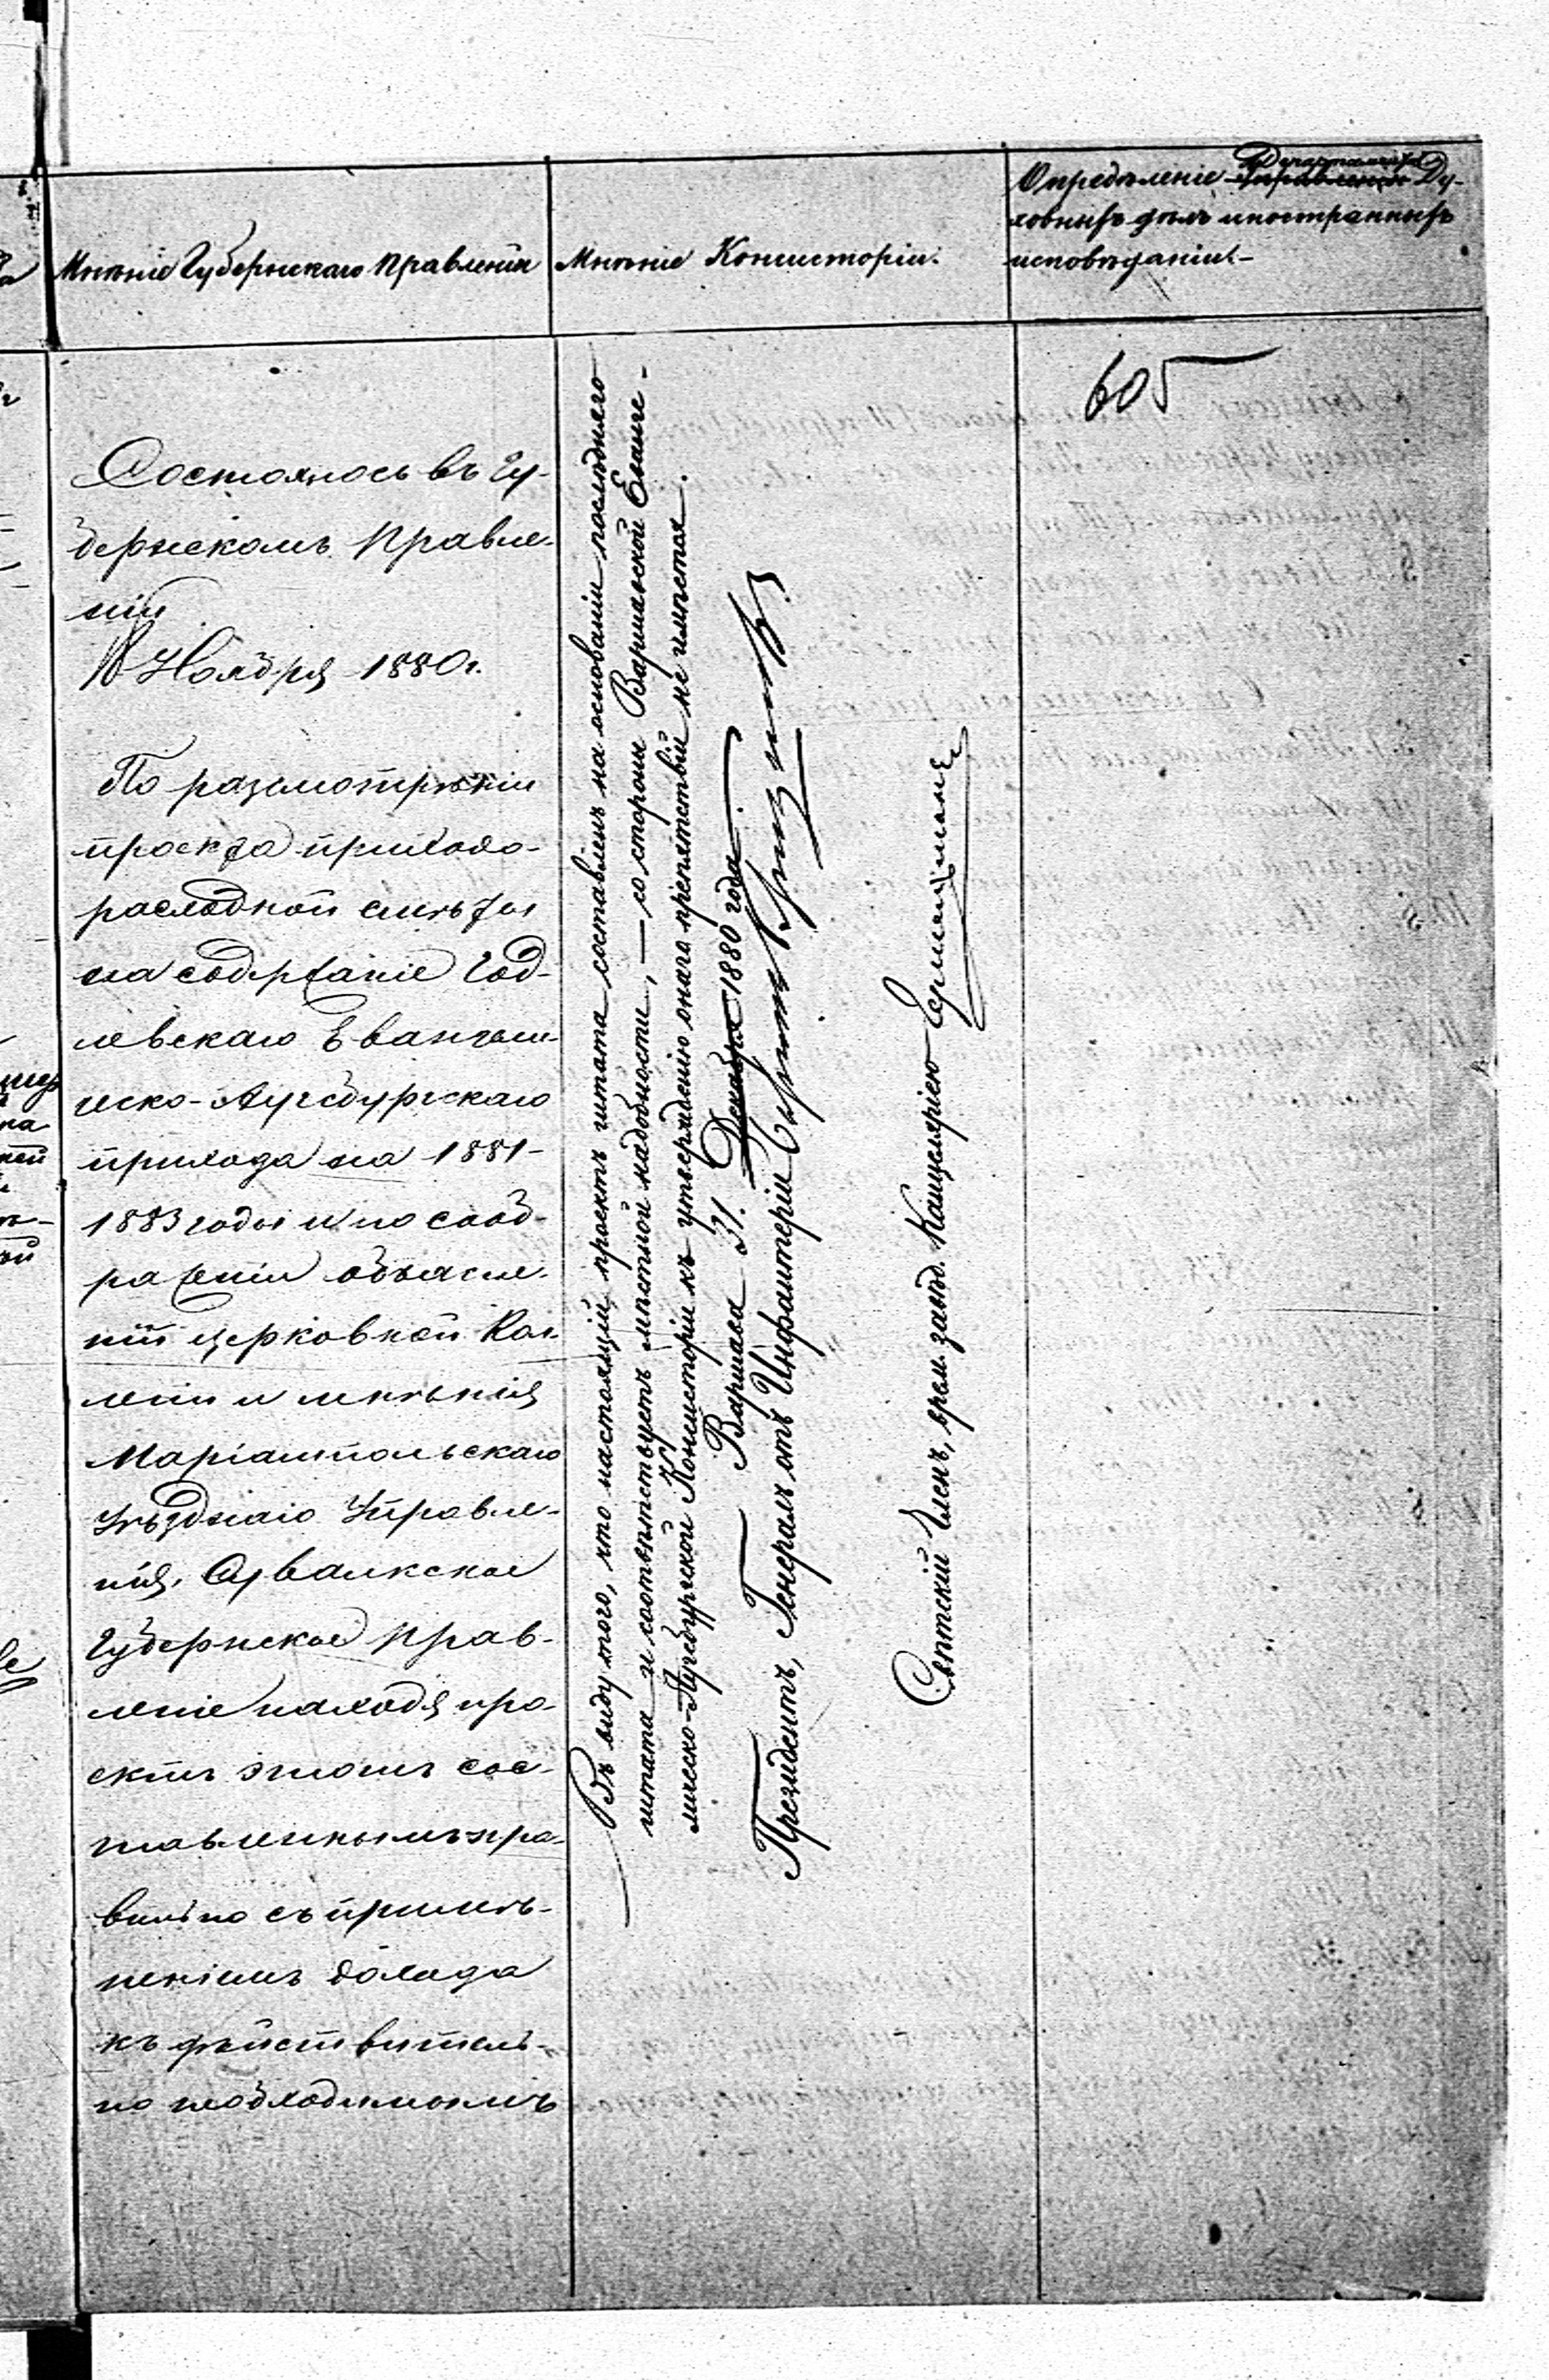 Мнѣніе Губернскаго Правленія
Мнѣніе Консисторіи.
Опредѣленіе Департамента Ду-
ховныхъ дѣлъ иностранныхъ
исповѣданій.–
605
Состоялось въ Гу-
бернскомъ Правле-
ніи
18 Ноября 1880 г.
По разсмотрѣніи
проекта приходо-
расходной смѣты
на содержаніе Год-
левскаго Евангели-
ческо-Аугсбургскаго
прихода на 1881-
1883 годы и по сооб-
раженіи объясне-
ній церковной Кол-
легіи и мнѣнія
Маріампольскаго
Уѣзднаго Управле-
нія, Сувалкское
Губернское Прав-
леніе находя про-
ектъ этотъ сос-
тавленнымъ пра-
вильно съ примѣ-
неніемъ дохода
къ дѣйствитель-
но необходимымъ
Въ виду того, что настоящій проектъ штата составленъ на основаніи послѣдняго
штата и соотвѣтствуетъ мѣстной надобности, — со стороны Варшавской Еванге-
лическо-Аугсбургской Консисторіи къ утвержденію онаго препятствій не имѣется.
Варшава 31. Декабря 1880 года.
Президентъ, Генералъ отъ Инфантеріи
Свѣтскій Членъ, врем. завѣд. Канцеляріею